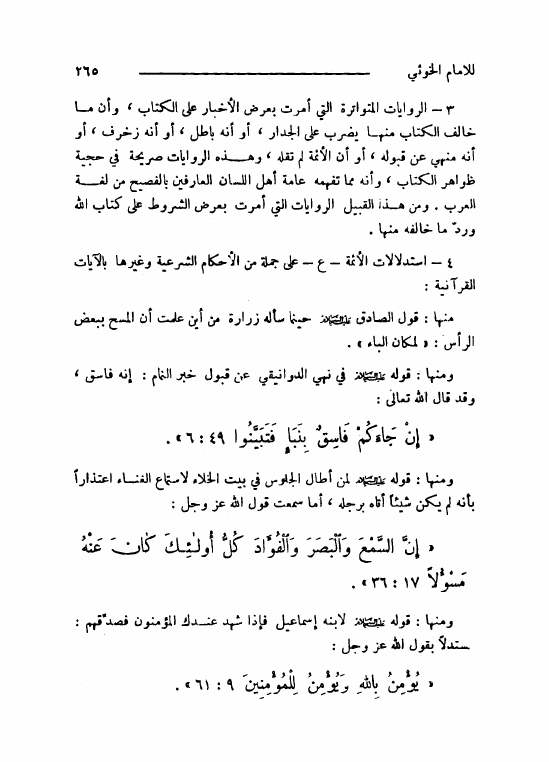 للامام الخوئي ٢٦٥
٣ – الروايات المتواترة التي أمرت بعرض الأخبار على الكتاب ، وأن مـا
خالف الكتاب منهـا يضرب على الجدار ، أو أنه باطل ، أو أنه زخرف ، أو
أنه منهي عن قبوله ، أو أن الأئمة لم تقله ، وهـــذه الروايات صريحة في حجية
ظواهر الكتاب ، وأنه مما تفهمه عامة أهل اللسان العارفين بالفصيح من لغـــة
العرب . ومن هـذا القبيل الروايات التي أمرت بعرض الشروط على كتاب الله
وردّ ما خالفه منها .
٤ – استدلالات الأئمة – ع – على جملة من الأحكام الشرعية وغيرها بالآيات
القرآنية :
منها : قول الصادق عليه السلام حينما سأله زرارة من أين علمت أن المسح ببعض
الرأس : « لمكان الباء » .
ومنها : قوله عليه السلام في نهي الدوانيقي عن قبول خبر النمام : إنه فاسق ،
وقد قال الله تعالى :
« إِنْ جَاءَكُمْ فَاسِقٌ بِنَبَإٍ فَتَبَيَّنُوا ٤٩ : ٦ » .
ومنها : قوله عليه السلام لمن أطال الجلوس في بيت الخلاء لاستماع الغنـــاء اعتذاراً
بأنه لم يكن شيئاً أتاه برجله ، أما سمعت قول الله عز وجل :
« إِنَّ السَّمْعَ وَٱلْبَصَرَ وَٱلْفُؤَادَ كُلُّ أُولٰئِكَ كَانَ عَنْهُ
مَسْؤُلاً ١٧ : ٣٦ » .
ومنها : قوله عليه السلام لابنه إسماعيل فإذا شهد عنـــدك المؤمنون فصدّقهم :
ستدلاً بقول الله عز وجل :
« يُؤْمِنُ بِاللهِ وَيُؤْمِنُ لِلْمُؤْمِنِينَ ٩ : ٦١ » .